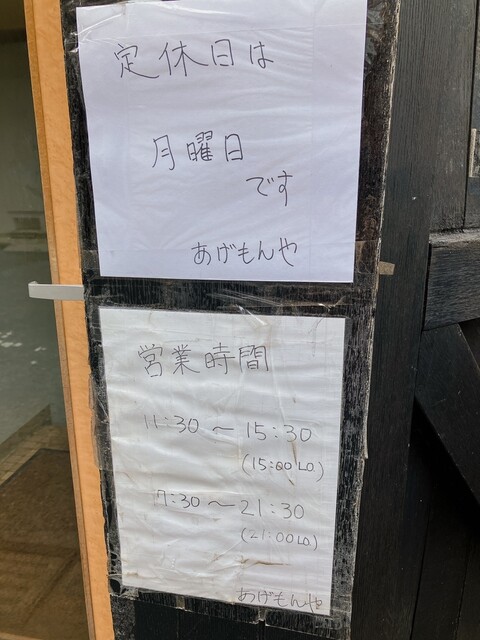 定休日は
月曜日
です
あげもんや
営業時間
11:30～15:30
(15:00 LO)
17:30～21:30
(21:00 LO)
あげもんや